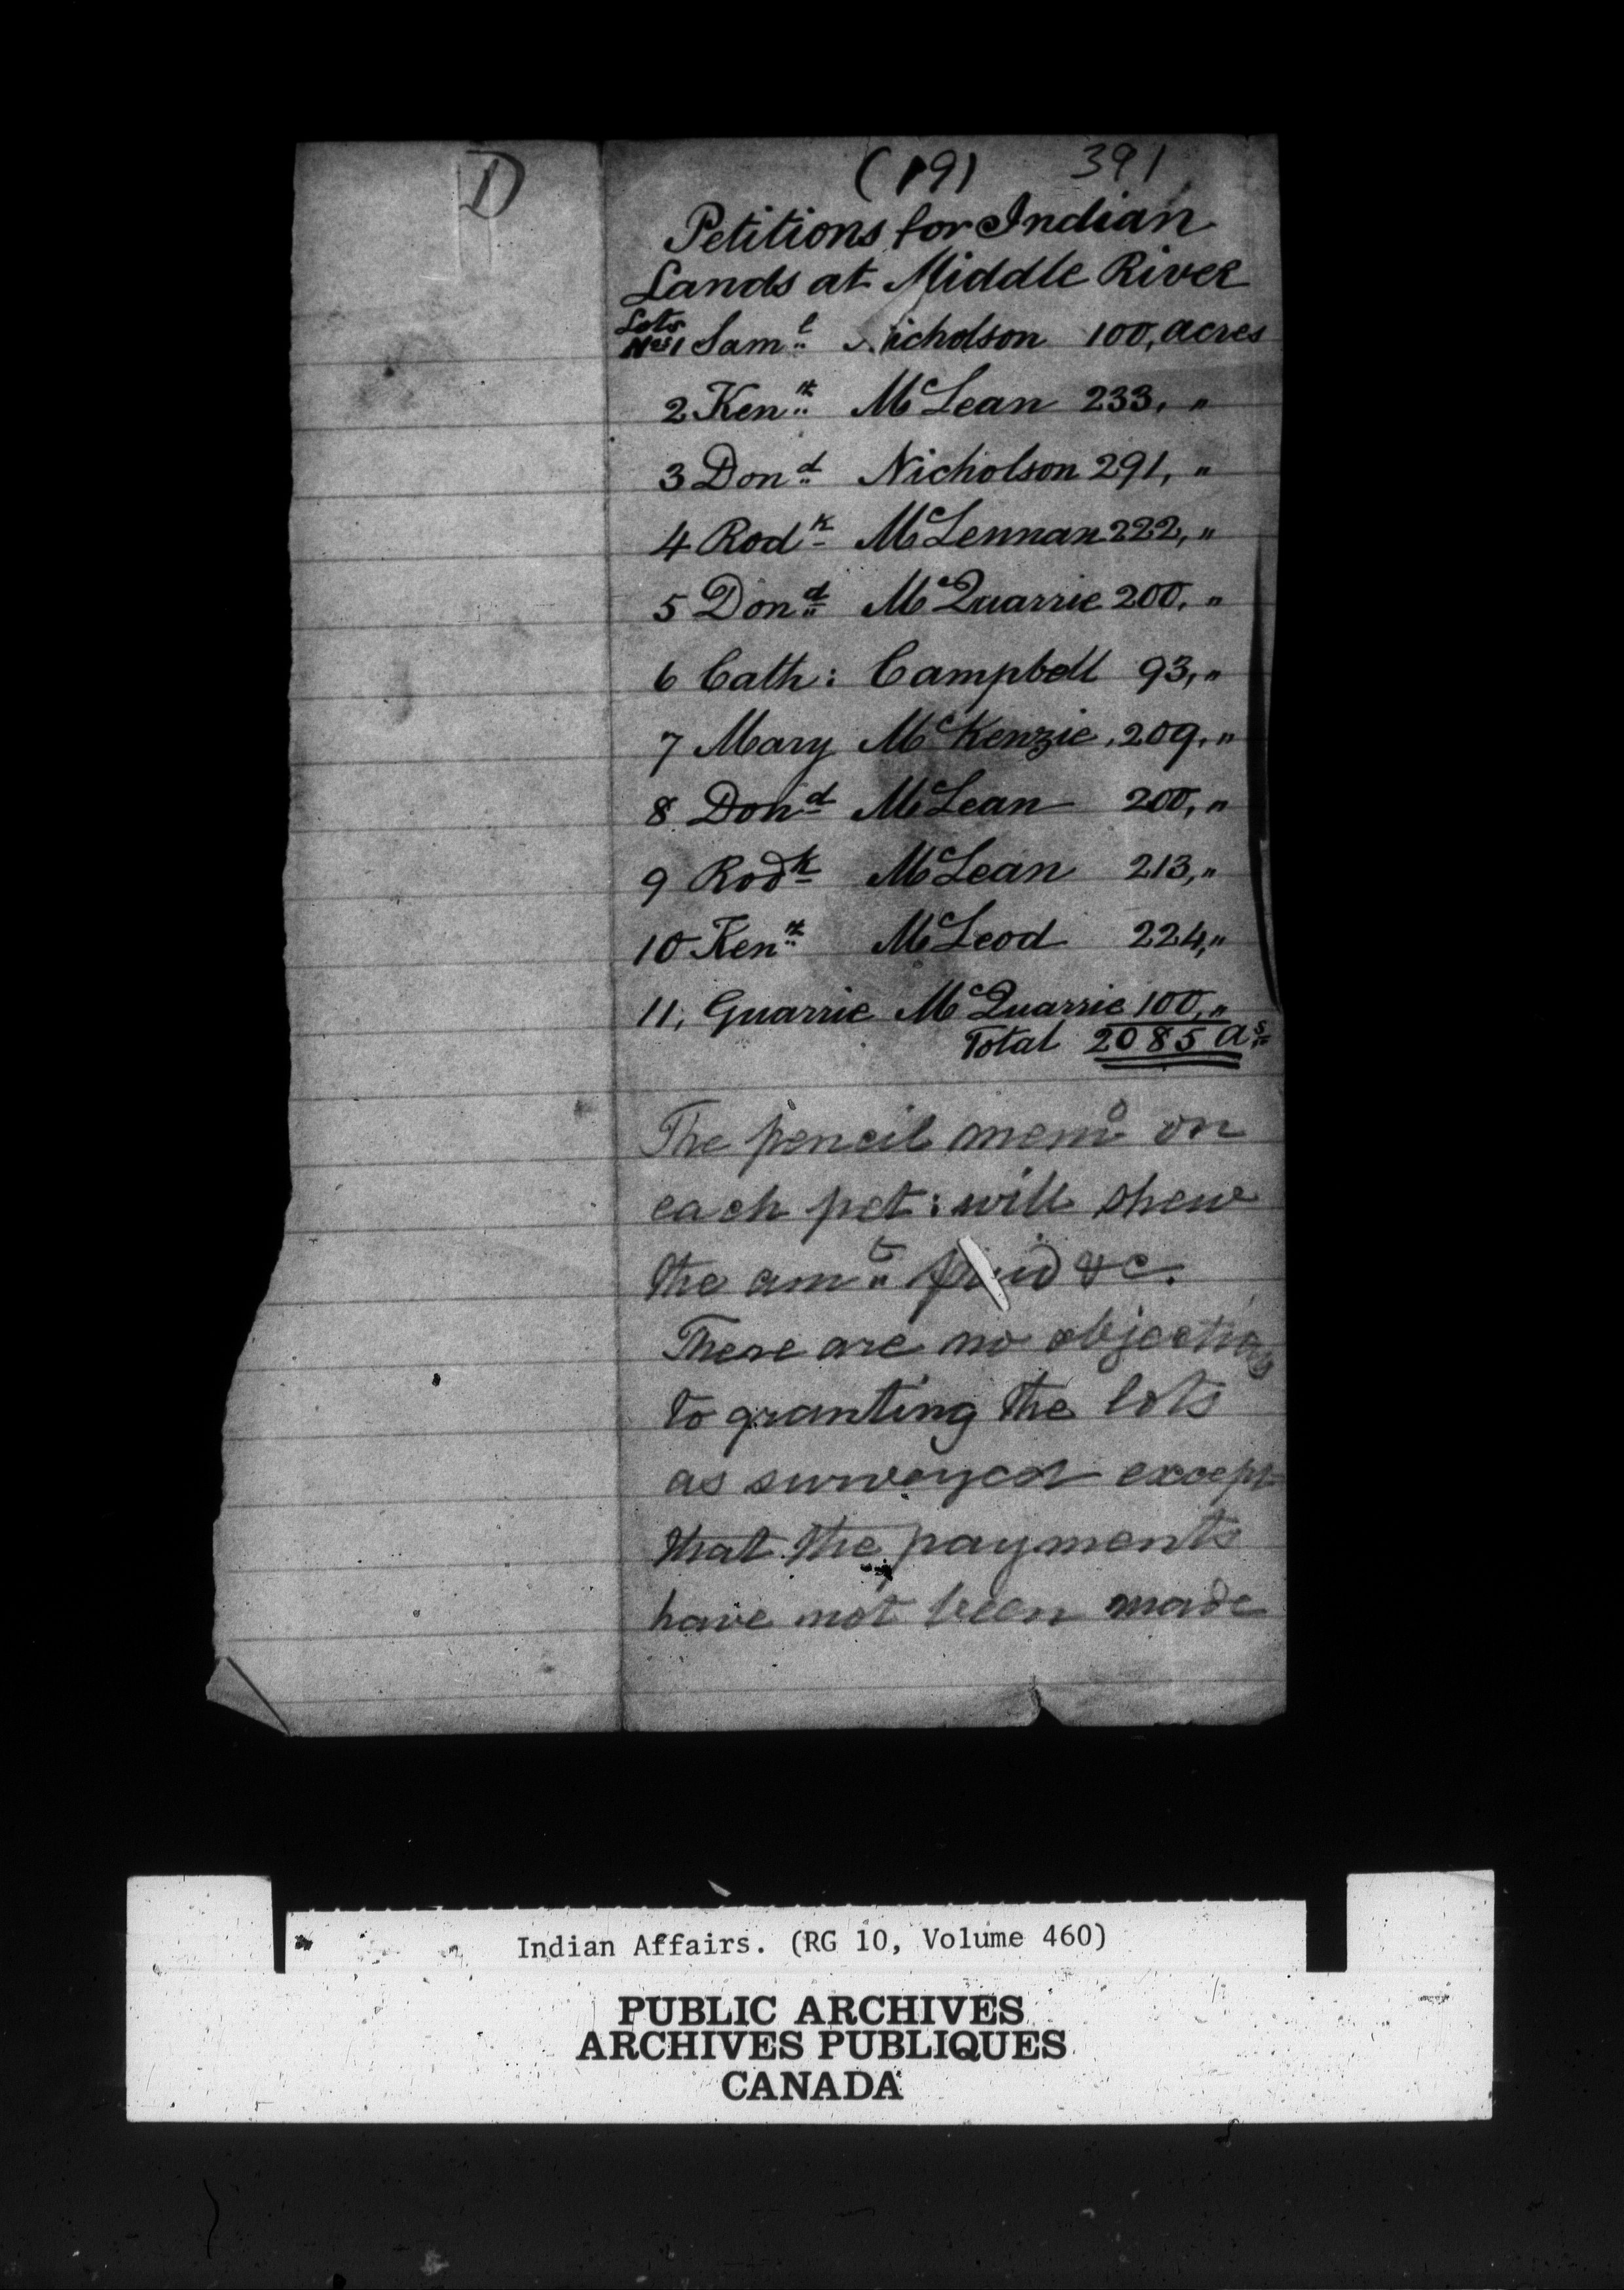 D
(19) 391
Petitions for Indian
Lands at Middle River
Lots
Nos 1 Saml Nicholson 100, acres
2 Kenth McLean 233, "
3 Dond Nicholson 291, "
4 Rodk McLennan 222, "
5 Dond McQuarrie 200, "
6 Cath: Campbell 93, "
7 Mary McKenzie, 209, "
8 Dond McLean 200, "
9 Rodk McLean 213, "
10 Kenth McLeod 224, "
11, Guarrie McQuarrie 100, "
Total 2085 As
The pencil memo on
each pet: will shew
the amt paid &c.
There are no objections
to granting the lots
as surveyed except
that the payments
have not been made
Indian Affairs. (RG 10, Volume 460)
PUBLIC ARCHIVES
ARCHIVES PUBLIQUES
CANADA